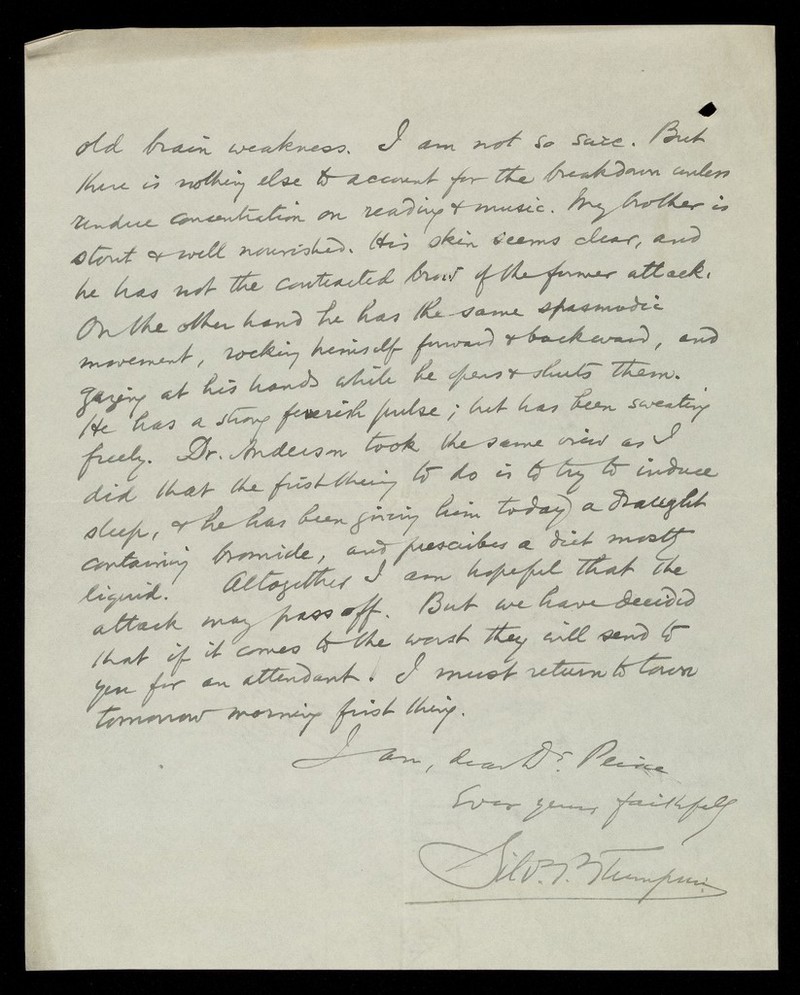 old brain weakness. I am not so sure. But
there is nothing else to account for the breakdown unless
undue concentration on reading & music. My brother is
stout & well nourished. His skin seems clear, and
he has not the contracted brow of the former attack.
On the other hand he has the same spasmodic
movement, rocking himself forward & backward, and
gazing at his hands while he opens & shuts them.
He has a strong feverish pulse; but has been sweating
freely. Dr. Anderson took the same view as I
did that the first thing to do is to try to induce
sleep, & he has been giving him today a draught
containing bromide, and prescribes a diet mostly
liquid. Altogether I am hopeful that the
attack may pass off. But we have decided
that if it comes to the worst they will send to
you for an attendant. I must return to town
tomorrow morning first thing.
I am, dear Dr. Peirce
Ever yours faithfully
Silv. P. Thompson